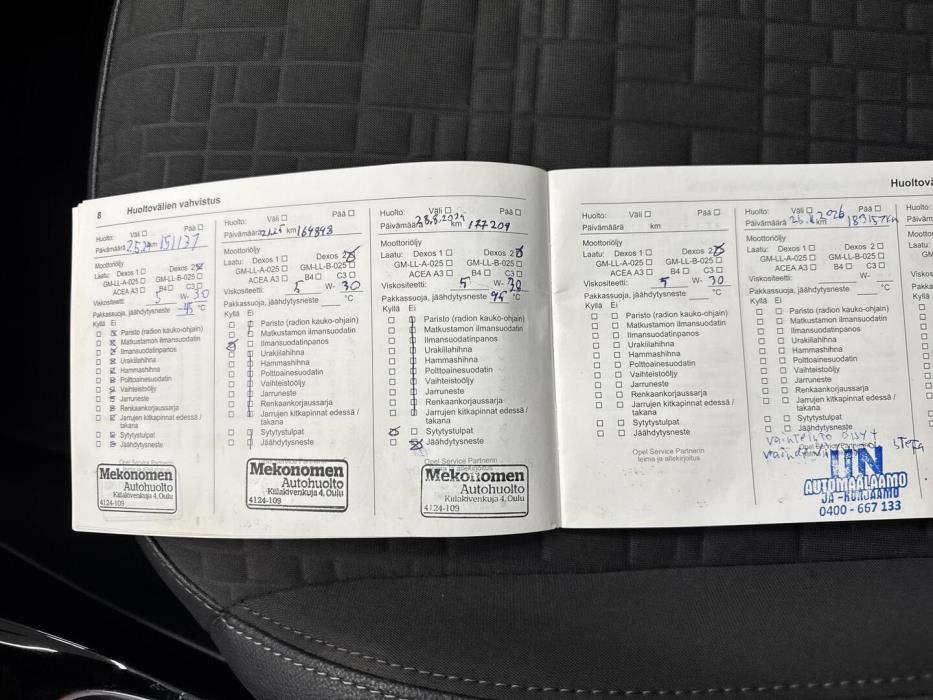 8 Huoltovälien vahvistus
Huolto: Väli Pää
Päivämäärä km 151137
Moottoriöljy
Laatu: Dexos 1 Dexos 2
GM-LL-A-025 GM-LL-B-025
ACEA A3 B4 C3
Viskositeetti: 5 W- 30
Pakkassuoja, jäähdytysneste -45 °C
Kyllä Ei
Paristo (radion kauko-ohjain)
Matkustamon ilmansuodatin
Ilmansuodatinpanos
Urakiilahihna
Hammashihna
Polttoainesuodatin
Vaihteistoöljy
Jarruneste
Renkaankorjaussarja
Jarrujen kitkapinnat edessä /
takana
Sytytystulpat
Jäähdytysneste
Opel Service Partnerin
Mekonomen
Autohuolto
Kiilakivenkuja 4, Oulu
4124-109
Huolto: Väli Pää
Päivämäärä km 164848
Moottoriöljy
Laatu: Dexos 1 Dexos 2
GM-LL-A-025 GM-LL-B-025
ACEA A3 B4 C3
Viskositeetti: 5 W- 30
Pakkassuoja, jäähdytysneste °C
Kyllä Ei
Paristo (radion kauko-ohjain)
Matkustamon ilmansuodatin
Ilmansuodatinpanos
Urakiilahihna
Hammashihna
Polttoainesuodatin
Vaihteistoöljy
Jarruneste
Renkaankorjaussarja
Jarrujen kitkapinnat edessä /
takana
Sytytystulpat
Jäähdytysneste
Mekonomen
Autohuolto
Kiilakivenkuja 4, Oulu
4124-109
Huolto: Väli Pää
Päivämäärä km 177209
Moottoriöljy
Laatu: Dexos 1 Dexos 2
GM-LL-A-025 GM-LL-B-025
ACEA A3 B4 C3
Viskositeetti: 5 W- 30
Pakkassuoja, jäähdytysneste 45 °C
Kyllä Ei
Paristo (radion kauko-ohjain)
Matkustamon ilmansuodatin
Ilmansuodatinpanos
Urakiilahihna
Hammashihna
Polttoainesuodatin
Vaihteistoöljy
Jarruneste
Renkaankorjaussarja
Jarrujen kitkapinnat edessä /
takana
Sytytystulpat
Jäähdytysneste
Opel Service Partnerin
Mekonomen
Autohuolto
Kiilakivenkuja 4, Oulu
4124-109
Huolto: Väli Pää
Päivämäärä km
Moottoriöljy
Laatu: Dexos 1 Dexos 2
GM-LL-A-025 GM-LL-B-025
ACEA A3 B4 C3
Viskositeetti: 5 W- 30
Pakkassuoja, jäähdytysneste °C
Kyllä Ei
Paristo (radion kauko-ohjain)
Matkustamon ilmansuodatin
Ilmansuodatinpanos
Urakiilahihna
Hammashihna
Polttoainesuodatin
Vaihteistoöljy
Jarruneste
Renkaankorjaussarja
Jarrujen kitkapinnat edessä /
takana
Sytytystulpat
Jäähdytysneste
Opel Service Partnerin
leima ja allekirjoitus
Huolto: Väli Pää
Päivämäärä 2026 km
Moottoriöljy
Laatu: Dexos 1 Dexos 2
GM-LL-A-025 GM-LL-B-025
ACEA A3 B4 C3
Viskositeetti: W-
Pakkassuoja, jäähdytysneste °C
Kyllä Ei
Paristo (radion kauko-ohjain)
Matkustamon ilmansuodatin
Ilmansuodatinpanos
Urakiilahihna
Hammashihna
Polttoainesuodatin
Vaihteistoöljy
Jarruneste
Renkaankorjaussarja
Jarrujen kitkapinnat edessä /
takana
Sytytystulpat
Jäähdytysneste
AUTOMAALAAMO
JA -KORJAAMO
0400 - 667 133